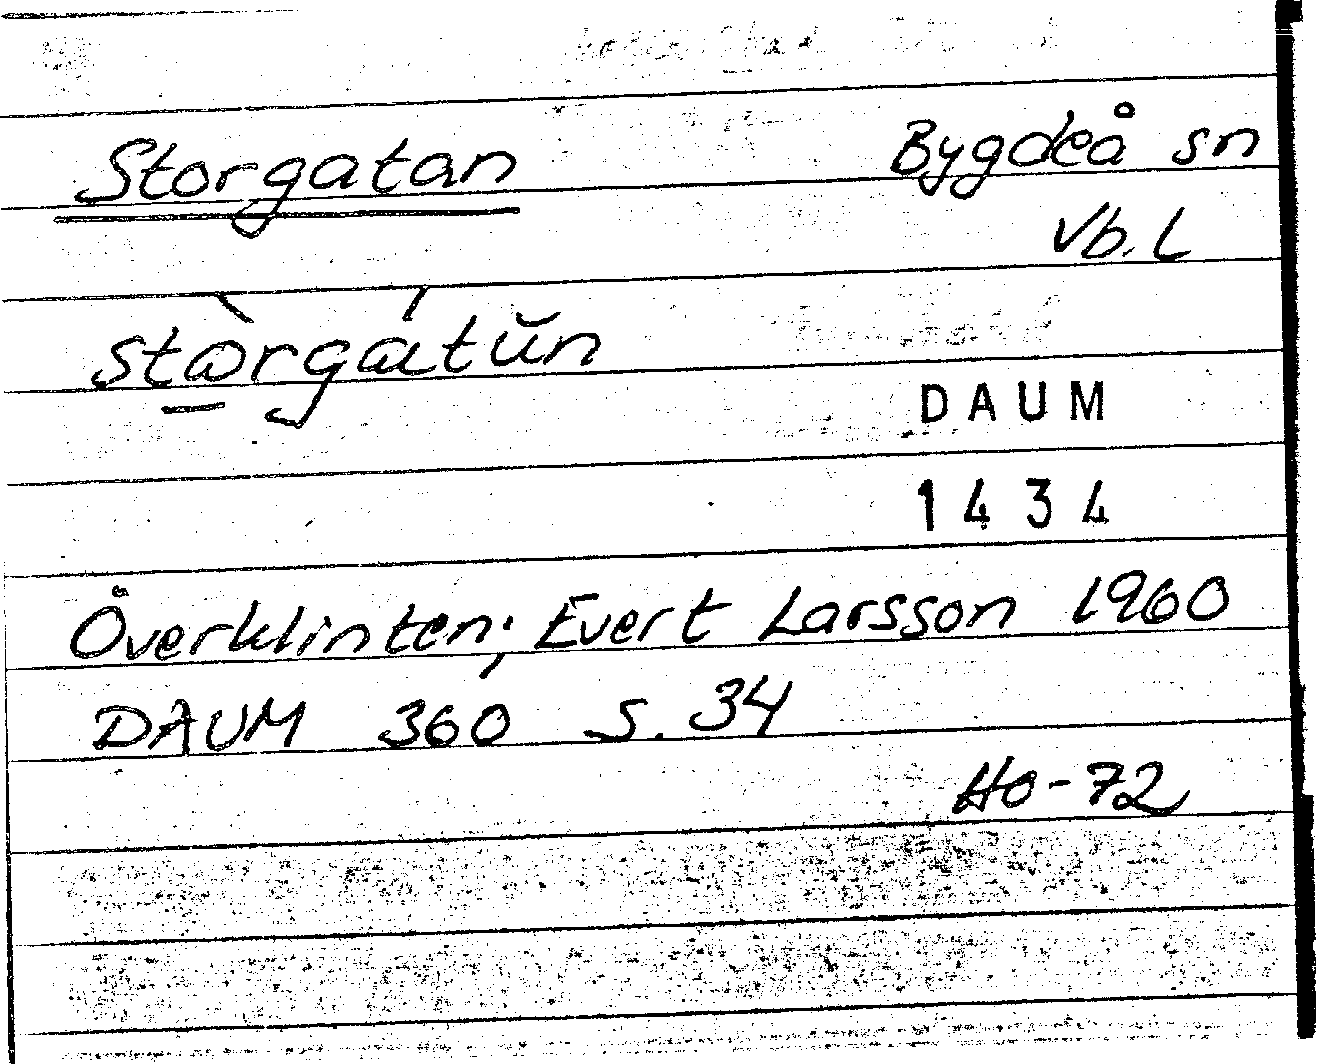 Storgatan Bygdeå sn
Vb. L
stὼrgátŭn
DAUM
1434
Överklinten; Evert Larsson 1960
DAUM 360 s. 34
Ho-72